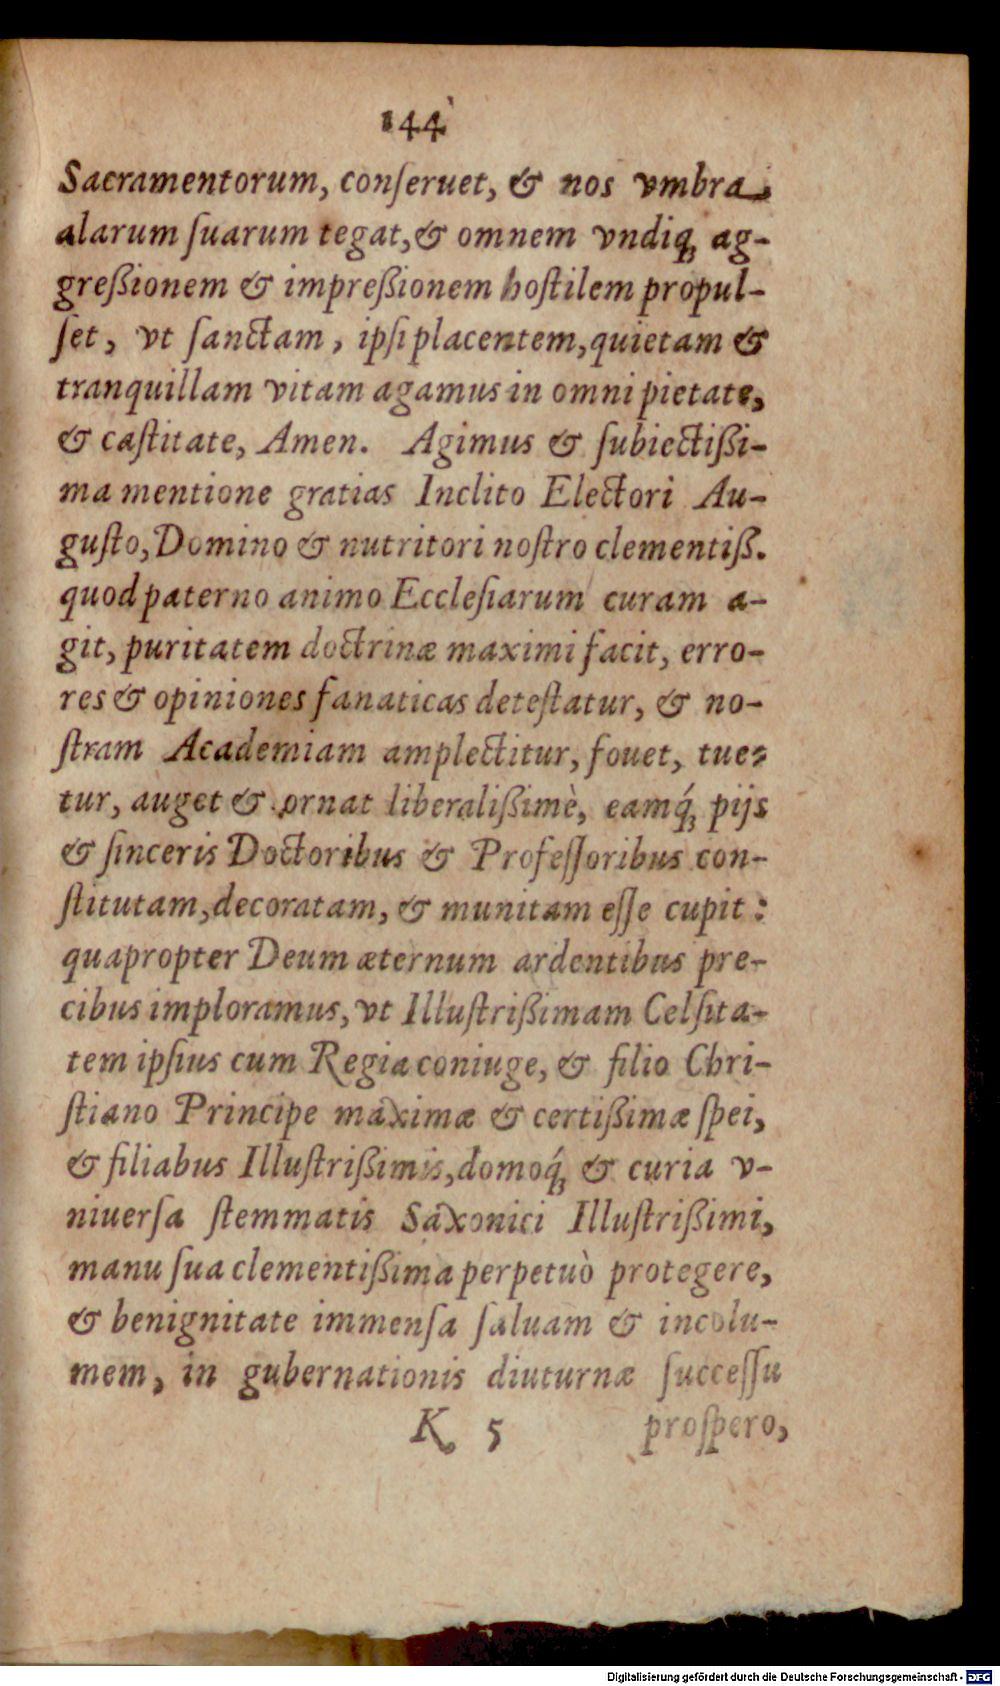 144
Sacramentorum, conſeruet, & nos vmbra
alarum ſuarum tegat, & omnem vndiq́; ag-
greßionem & impreßionem hoſtilem propul-
ſet, vt ſanctam, ipſi placentem, quietam &
tranquillam vitam agamus in omni pietate,
& caſtitate, Amen. Agimus & ſubiectißi-
ma mentione gratias Inclito Electori Au-
guſto, Domino & nutritori noſtro clementiß.
quod paterno animo Eccleſiarum curam a-
git, puritatem doctrinæ maximi facit, erro-
res & opiniones fanaticas deteſtatur, & no-
ſtram Academiam amplectitur, fouet, tue-
tur, auget & ornat liberalißimè, eamq́; pijs
& ſinceris Doctoribus & Profeſſoribus con-
ſtitutam, decoratam, & munitam eſſe cupit:
quapropter Deum æternum ardentibus pre-
cibus imploramus, vt Illuſtrißimam Celſita-
tem ipſius cum Regia coniuge, & filio Chri-
ſtiano Principe maximæ & certißimæ ſpei,
& filiabus Illuſtrißimis, domoq́; & curia v-
niuerſa ſtemmatis Saxonici Illuſtrißimi,
manu ſua clementißima perpetuò protegere,
& benignitate immenſa ſaluam & incolu-
mem, in gubernationis diuturnæ ſucceſſu
K 5 proſpero,
Digitalisierung gefördert durch die Deutsche Forschungsgemeinschaft - DFG